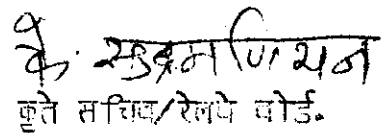 के. सुब्रमणियन
कृते सचिव/रेलवे बोर्ड.